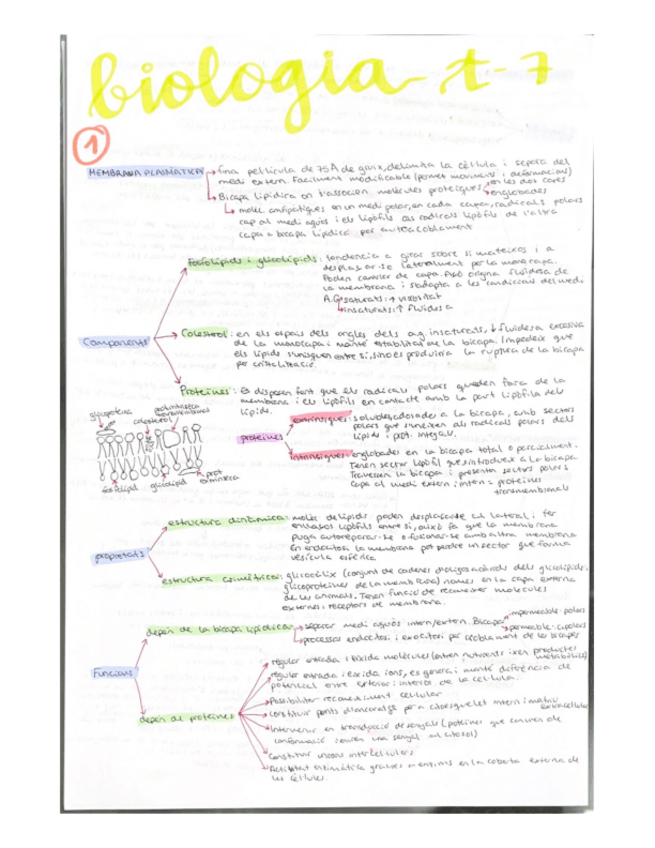 biologia t-7
1
MEMBRANA PLASMÀTICA → fina pel·lícula de 75Å de gruix, delimita la cèl·lula i separa del
medi extern. Fàcilment modificable (permet moviments i deformacions)
Bicapa lipídica on s'associen molècules proteiques → en les dos cares
→ englobades
molèc amfipàtiques en un medi polar, en cada capa, radicals polars
cap al medi aquós i els lipòfils als radicals lipòfils de l'altra
capa → bicapa lipídica per autoacoblament
Fosfolípids i glicolípids: tendència a girar sobre si mateixos i a
desplaçar-se lateralment per la monocapa.
Poden canviar de capa. Això origina fluïdesa de
la membrana i s'adapta a les condicions del medi
A.G saturats: ↑ viscositat
insaturats: ↑ fluïdesa
Components
Colesterol: en els espais dels angles dels a.g. insaturats, ↓ fluïdesa excessiva
de la monocapa i manté estabilitat de la bicapa. Impedeix que
els lípids s'unisquen entre si, sino es produiria la ruptura de la bicapa
per cristal·lització.
Proteïnes: Es disposen fent que els radicals polars queden fora de la
membrana i els lipòfils en contacte amb la part lipòfila dels
lípids.
glucoproteïna
colesterol
fosfolípid
glicolípid
prot extrínseca
proteïnes
extrínseques: solubles, adosades a la bicapa, amb sectors
polars que s'uneixen als radicals polars dels
lípids i prot. integrals.
intrínseques: englobades en la bicapa total o parcialment.
Tenen sector lipòfil que s'introdueix a la bicapa
Travessen la bicapa i presenten sectors polars
capa al medi extern i intern: proteïnes
transmembranals
propietats
estructura dinàmica: molèc de lípids poden desplaçar-se en lateral i fer
enllaços lipòfils entre si, això fa que la membrana
puga autoreparar-se o fusionar-se amb altra membrana
En endocitosi la membrana pot perdre un sector que forma
vesícula esfèrica
estructura asimètrica: glicocàlix (conjunt de cadenes d'oligosacàrids dels glicolípids i
glicoproteïnes de la membrana) només en la capa externa
de les animals. Tenen funció de reconèixer molècules
externes: receptors de membrana.
Funcions
depén de la bicapa lipídica → separar medi aquós intern/extern. Bicapa → impermeable: polars
→ permeable: apolars
processos endocitosi i exocitosi per acoblament de les bicapes
depén de proteïnes
regular entrada i eixida molècules (entren nutrients ixen productes
metabòlics)
regular entrada i eixida ions, es genera i manté diferència de
potencial entre exterior i interior de la cèl·lula.
Possibilitar reconeixement cel·lular
Constituir punts d'ancoratge per a citoesquelet intern i matriu
extracel·lular
Intervenir en transducció de senyals (proteïnes que canvien de
conformació i envien una senyal al citosol)
Constituir unions intercel·lulars
Activitat enzimàtica gràcies a enzims en la coberta externa de
les cèl·lules.